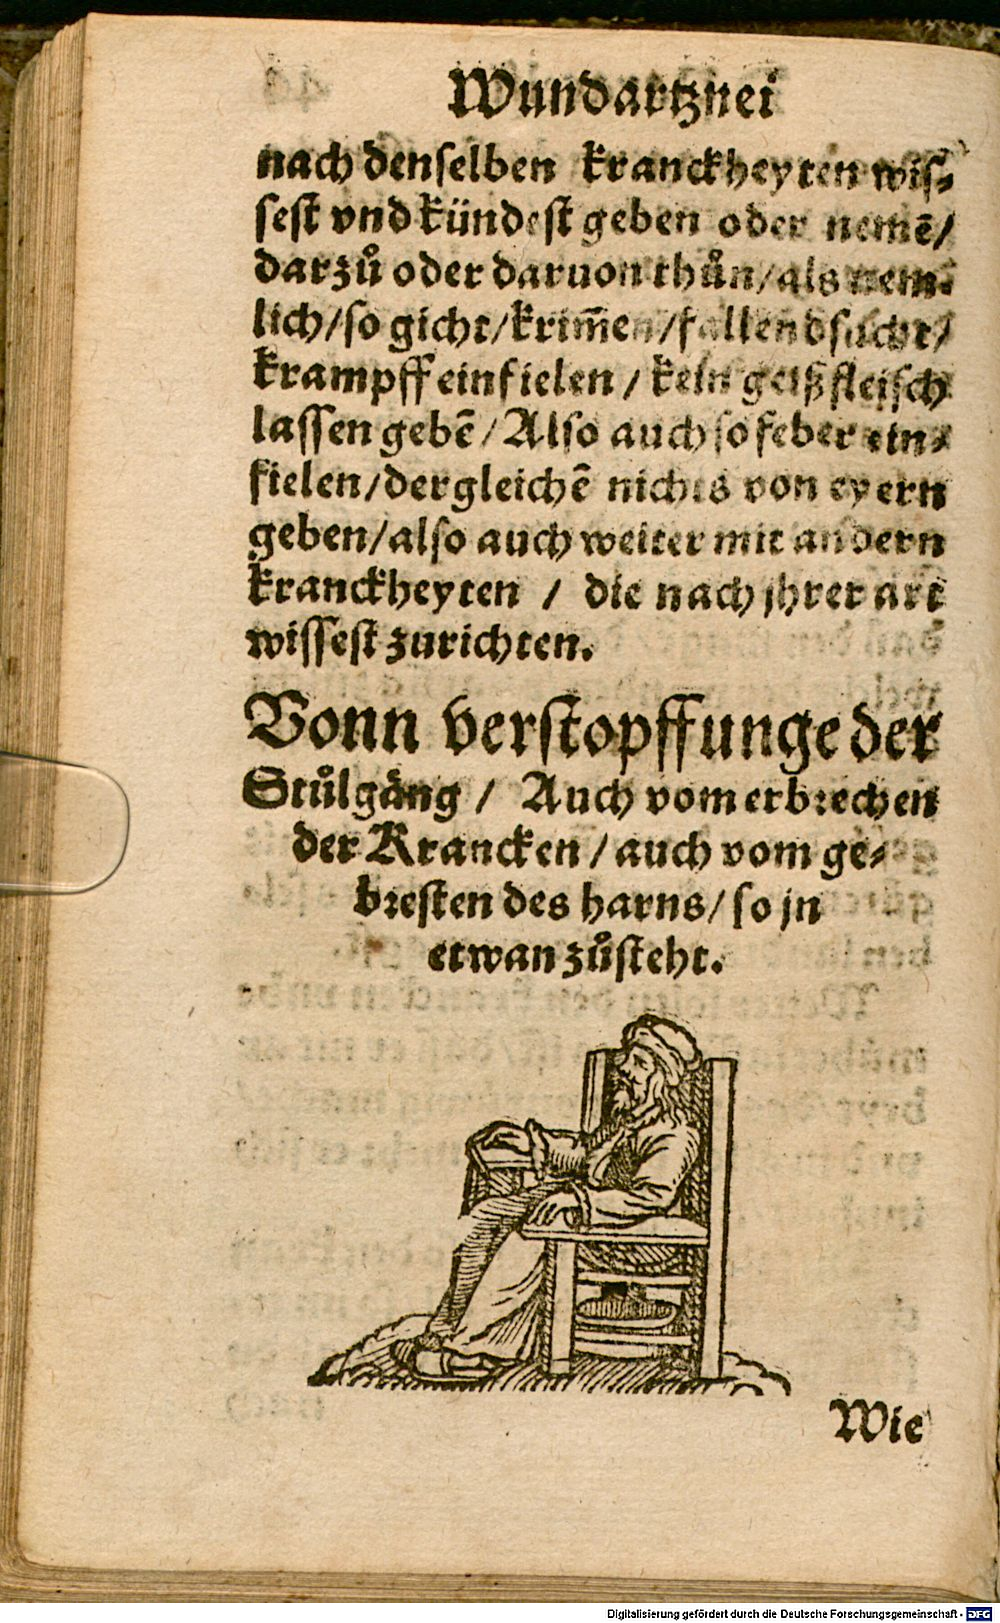 Wundartznei
nach denſelben kranckheyten wiſ⸗
ſeſt vnd kündeſt geben oder nemẽ/
darzů oder daruon thůn/als nem⸗
lich/ſo gicht/krim̃en/fallendſucht/
krampff einfielen/kein geiß fleiſch
laſſen gebẽ/Alſo auch ſo feber ein⸗
fielen/dergleichẽ nichts von eyern
geben/alſo auch weiter mit andern
kranckheyten / die nach jhrer art
wiſſeſt zurichten.
Vonn verſtopffunge der
Stůlgäng / Auch vom erbrechen
der Krancken/auch vom ge⸗
breſten des harns/ſo jn
etwan zůſteht.
Wie
Digitalisierung gefördert durch die Deutsche Forschungsgemeinschaft - DFG